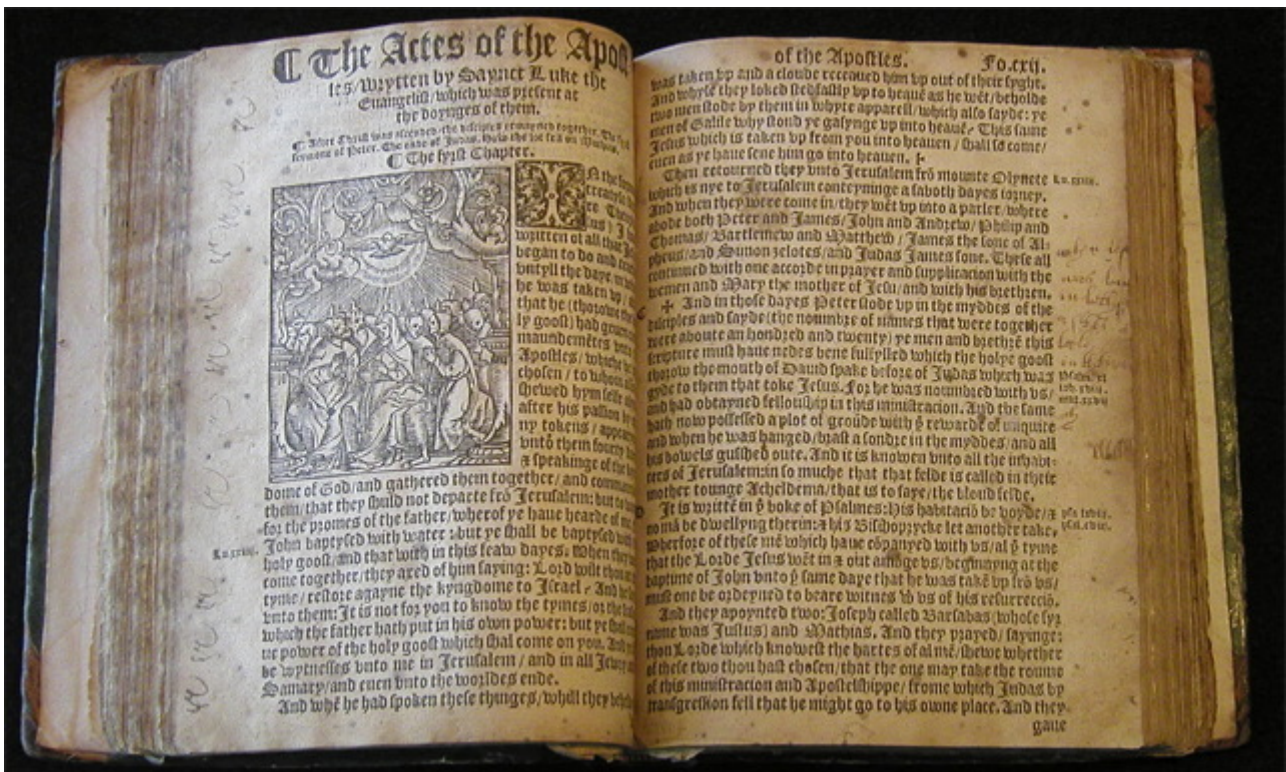 ¶ The Actes of the Apost
les/wrytten by Saynct Luke the
Euangelist/which was present at
the doynges of them.
¶ After Christ was ascended/the disciples remayned together. The
sermons of Peter. The ende of Judas.
¶ The fyrst Chapter.
IN the
Theo
I
written of all that Je
began to do and
vntyll the daye
he was taken vp/
that he (thorowe the
ly goost) had geuen
maundemētes vnto
Apostles/
chosen/to whom
shewed hym selfe
after his passion by
ny tokens/
vnto them fourty
⁊ speakinge of the
dome of God/and gathered them together/and
them/that they shuld not departe frō Jerusalem: but to
for the promes of the father/wherof ye haue hearde of me
John baptysed with water: but ye shall be baptysed
Lu.xxiiij.
holy goost/and that with in this feaw dayes. When they
come together/they axed of him saying: Lord wilt thou
tyme/restore agayne the kyngdome to Israel? And he
vnto them: It is not for you to know the tymes/or the
which the father hath put in his own power: but ye shall
ue power of the holy goost which shal come on you. And
be wytnesses vnto me in Jerusalem/and in all Jewry
Samary/and euen vnto the worldes ende.
And whē he had spoken these thinges/whill they
of the Apostles.
Fo.cxij.
was taken vp and a cloude receaued him vp out of their syght.
And whyle they loked stedfastly vp to heauē as he wēt/beholde
two men stode by them in whyte apparell/which also sayde: ye
men of Galile why stond ye gasynge vp into heauē? This same
Jesus which is taken vp from you into heauen/shall so come/
euen as ye haue sene him go into heauen.
Then retourned they vnto Jerusalem frō mounte Olyuete
which is nye to Jerusalem conteyninge a saboth dayes iorney.
And when they were come in/they wēt vp into a parler/where
abode both Peter and James/John and Andrew/Philip and
Thomas/Bartlemew and Matthew/James the sone of Al-
pheus/and Simon zelotes/and Judas James sone. These all
continued with one accorde in prayer and supplicacion with the
wemen and Mary the mother of Jesu/and with his brethren.
✠ And in those dayes Peter stode vp in the myddes of the
disciples and sayde (the noumbre of names that were together
were aboute an hondred and twenty) ye men and brethrē this
scripture must haue nedes bene fulfylled which the holye goost
thorow the mouth of Dauid spake before of Judas which was
gyde to them that toke Jesus. For he was noumbred with vs/
and had obtayned fellouship in this ministracion. And the same
hath now possessed a plot of groūde with ẏ rewarde of iniquite
and when he was hanged/brast a sondre in the myddes/and all
his bowels gusshed oute. And it is knowen vnto all the inhabi-
ters of Jerusalem: in so muche that that felde is called in their
mother tounge Acheldema/that is to saye/the bloud felde.
It is writtē in ẏ boke of Psalmes: his habitaciō be voyde/⁊
no mā be dwellyng therin: ⁊ his Bishoprycke let another take.
Wherfore of these mē which haue cōpanyed with vs/al ẏ tyme
that the Lorde Jesus wēt in ⁊ out amōge vs/begynnyng at the
baptime of John vnto ẏ same daye that he was takē vp frō vs/
must one be ordeyned to beare witnes wͭ vs of his resurrecciō.
And they apoynted two: Joseph called Barsabas (whose syr
name was Justus) and Mathias. And they prayed/sayinge:
thou Lorde which knowest the hartes of al mē/shewe whether
of these two thou hast chosen/that the one may take the roume
of this ministracion and Apostelshippe/frome which Judas by
transgression fell that he might go to his owne place. And they
gaue